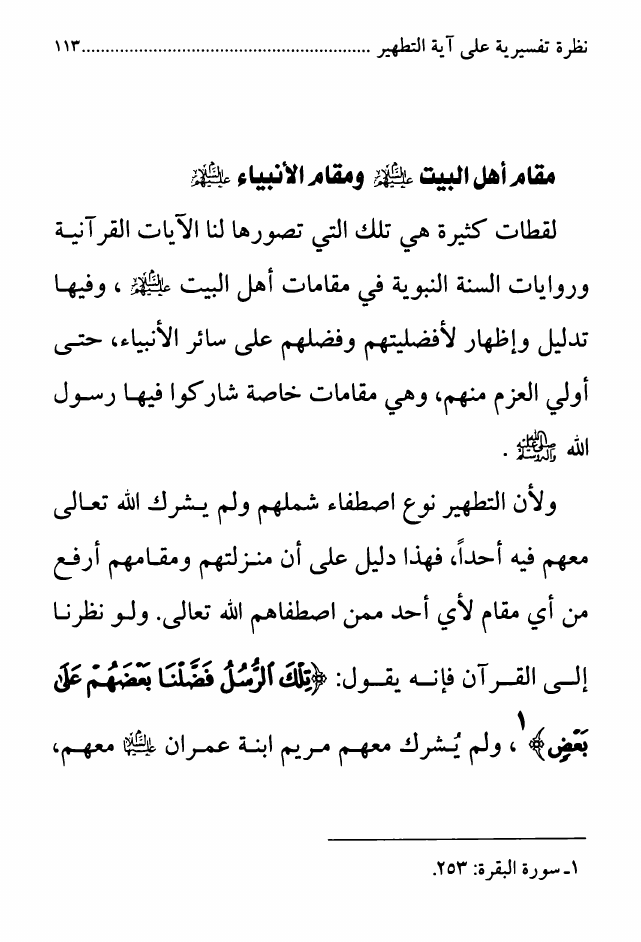 نظرة تفسيرية على آية التطهير .............................................................١١٣
مقام أهل البيت عليهم السلام ومقام الأنبياء عليهم السلام
لقطات كثيرة هي تلك التي تصورها لنا الآيات القرآنية
وروايات السنة النبوية في مقامات أهل البيت عليهم السلام ، وفيها
تدليل وإظهار لأفضليتهم وفضلهم على سائر الأنبياء، حتى
أولي العزم منهم، وهي مقامات خاصة شاركوا فيها رسول
الله صلى الله عليه وآله وسلم .
ولأن التطهير نوع اصطفاء شملهم ولم يشرك الله تعالى
معهم فيه أحداً، فهذا دليل على أن منزلتهم ومقامهم أرفع
من أي مقام لأي أحد ممن اصطفاهم الله تعالى. ولو نظرنا
إلى القرآن فإنه يقول: ﴿تِلْكَ ٱلرُّسُلُ فَضَّلْنَا بَعْضَهُمْ عَلَىٰ
بَعْضٍ﴾١، ولم يُشرك معهم مريم ابنة عمران عليها السلام معهم،
١ـ سورة البقرة: ٢٥٣.